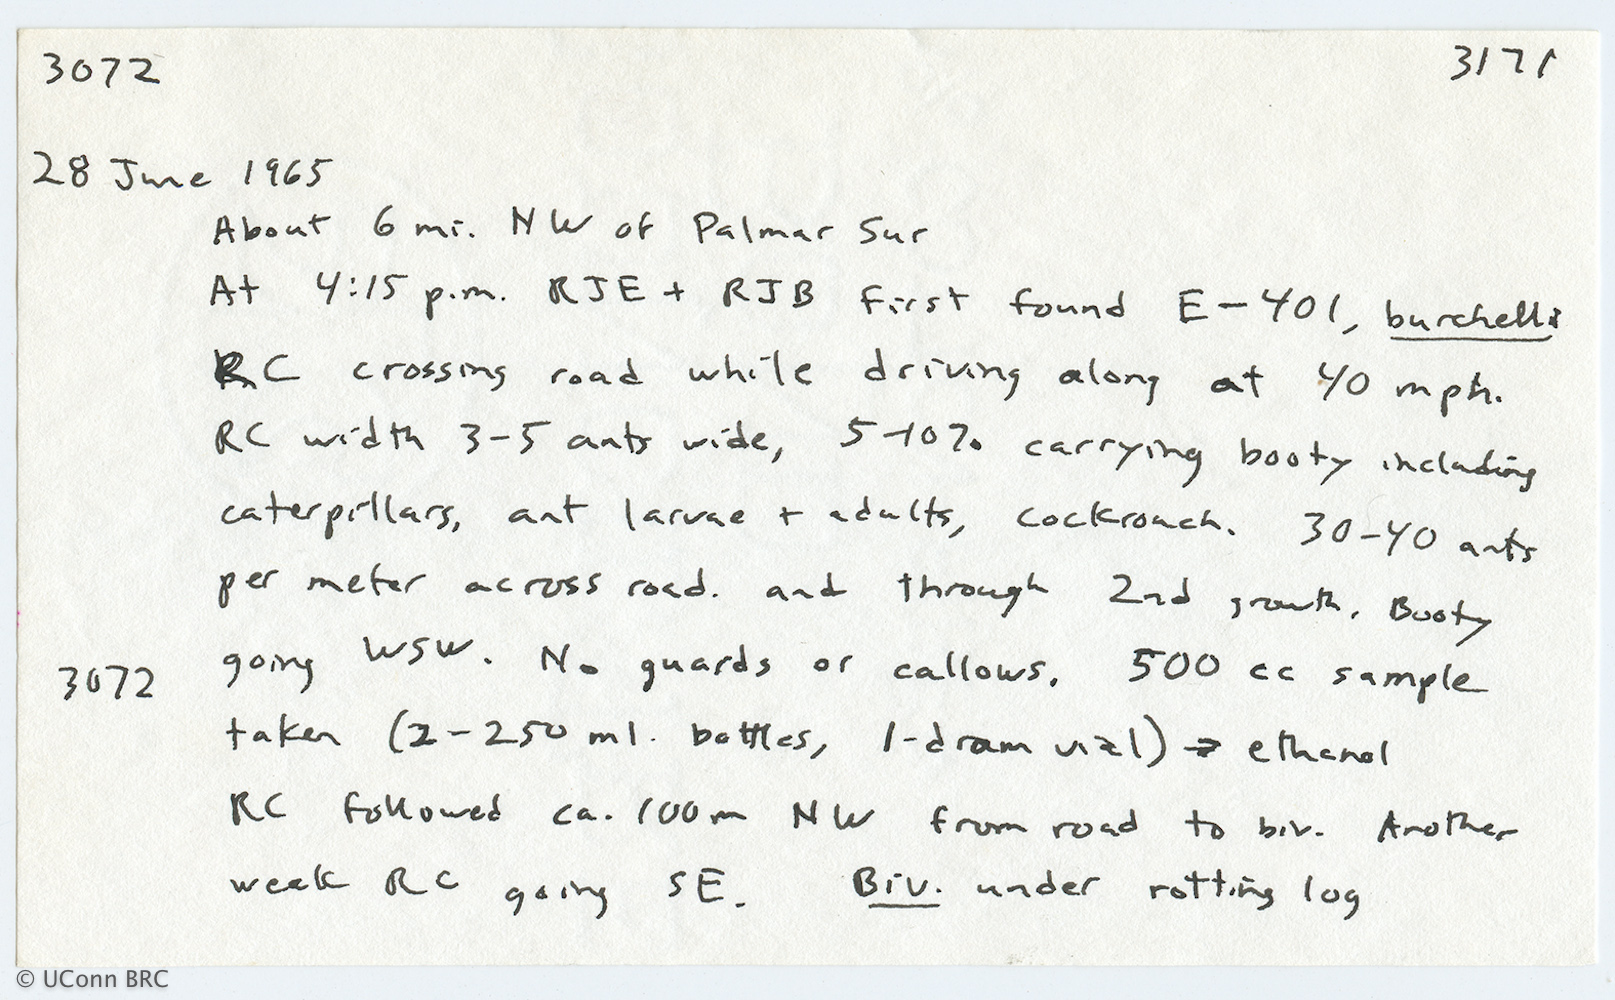 3072 3171
28 June 1965
About 6 mi. NW of Palmar Sur
At 4:15 p.m. RJE + RJB first found E-401, burchelli
RC crossing road while driving along at 40 mph.
RC width 3-5 ants wide, 5-10% carrying booty including
caterpillars, ant larvae + adults, cockroach. 30-40 ants
per meter across road. and through 2nd growth. Booty
going WSW. No guards or callows. 500 cc sample
3072
taken (2-250 ml. bottles, 1-dram vial) → ethanol
RC followed ca. 100m NW from road to biv. Another
weak RC going SE. Biv. under rotting log
© UConn BRC